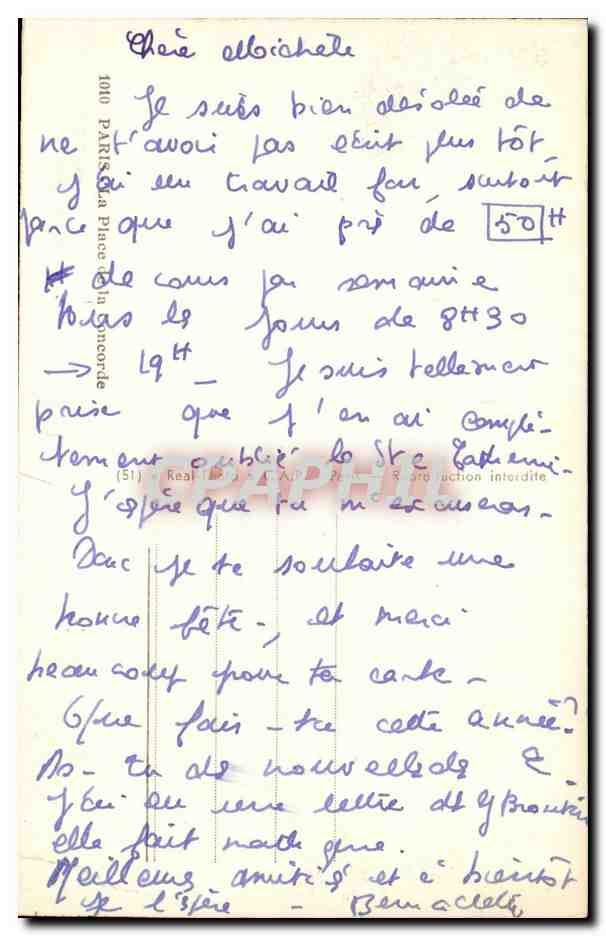 Chère Michèle
Je suis bien désolée de
ne t'avoir pas écrit plus tôt,
j'ai un travail fou, surtout
parce que j'ai près de 50 H
de cours par semaine
tous les jours de 8H30
→ 19H _ Je suis tellement
prise que j'en ai complè-
tement oublié la Ste Catherine.
J'espère que tu m'excuseras.
Donc je te souhaite une
bonne fête, et merci
beaucoup pour ta carte -
Que fais-tu cette année?
As-tu des nouvelles de
J'ai eu une lettre de
elle fait math gne.
Meilleures amitiés et à bientôt
je l'espère - Bernadette
1010 PARIS - La Place de la Concorde
(51) Real-Photo Reproduction interdite
CPAPHIL